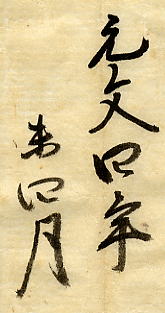 元文四年
未四月